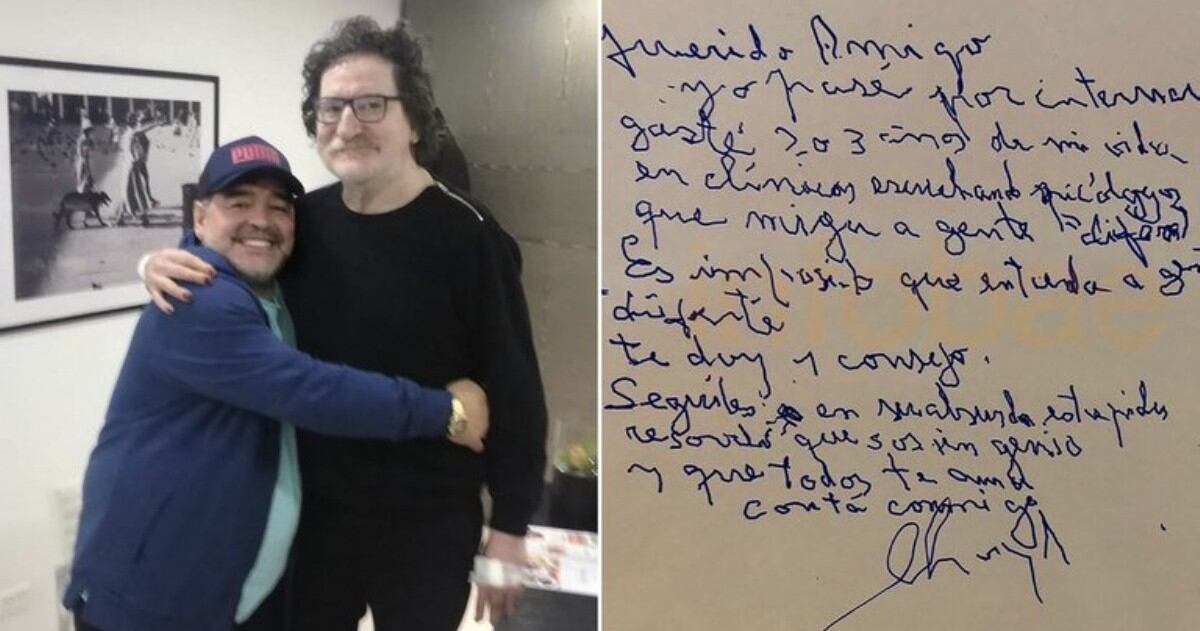 PUMA
Querido Amigo
yo pasé por internar
gasté 2 o 3 años de mi vida
en clínicas escuchando psicólogos
que miran a gente "diferen
Es imposible que entienda a
diferente
te doy 1 consejo.
Seguiles en su absurda estupidez
recordá que sos un genio
y que todos te aman
contá conmigo
infobae